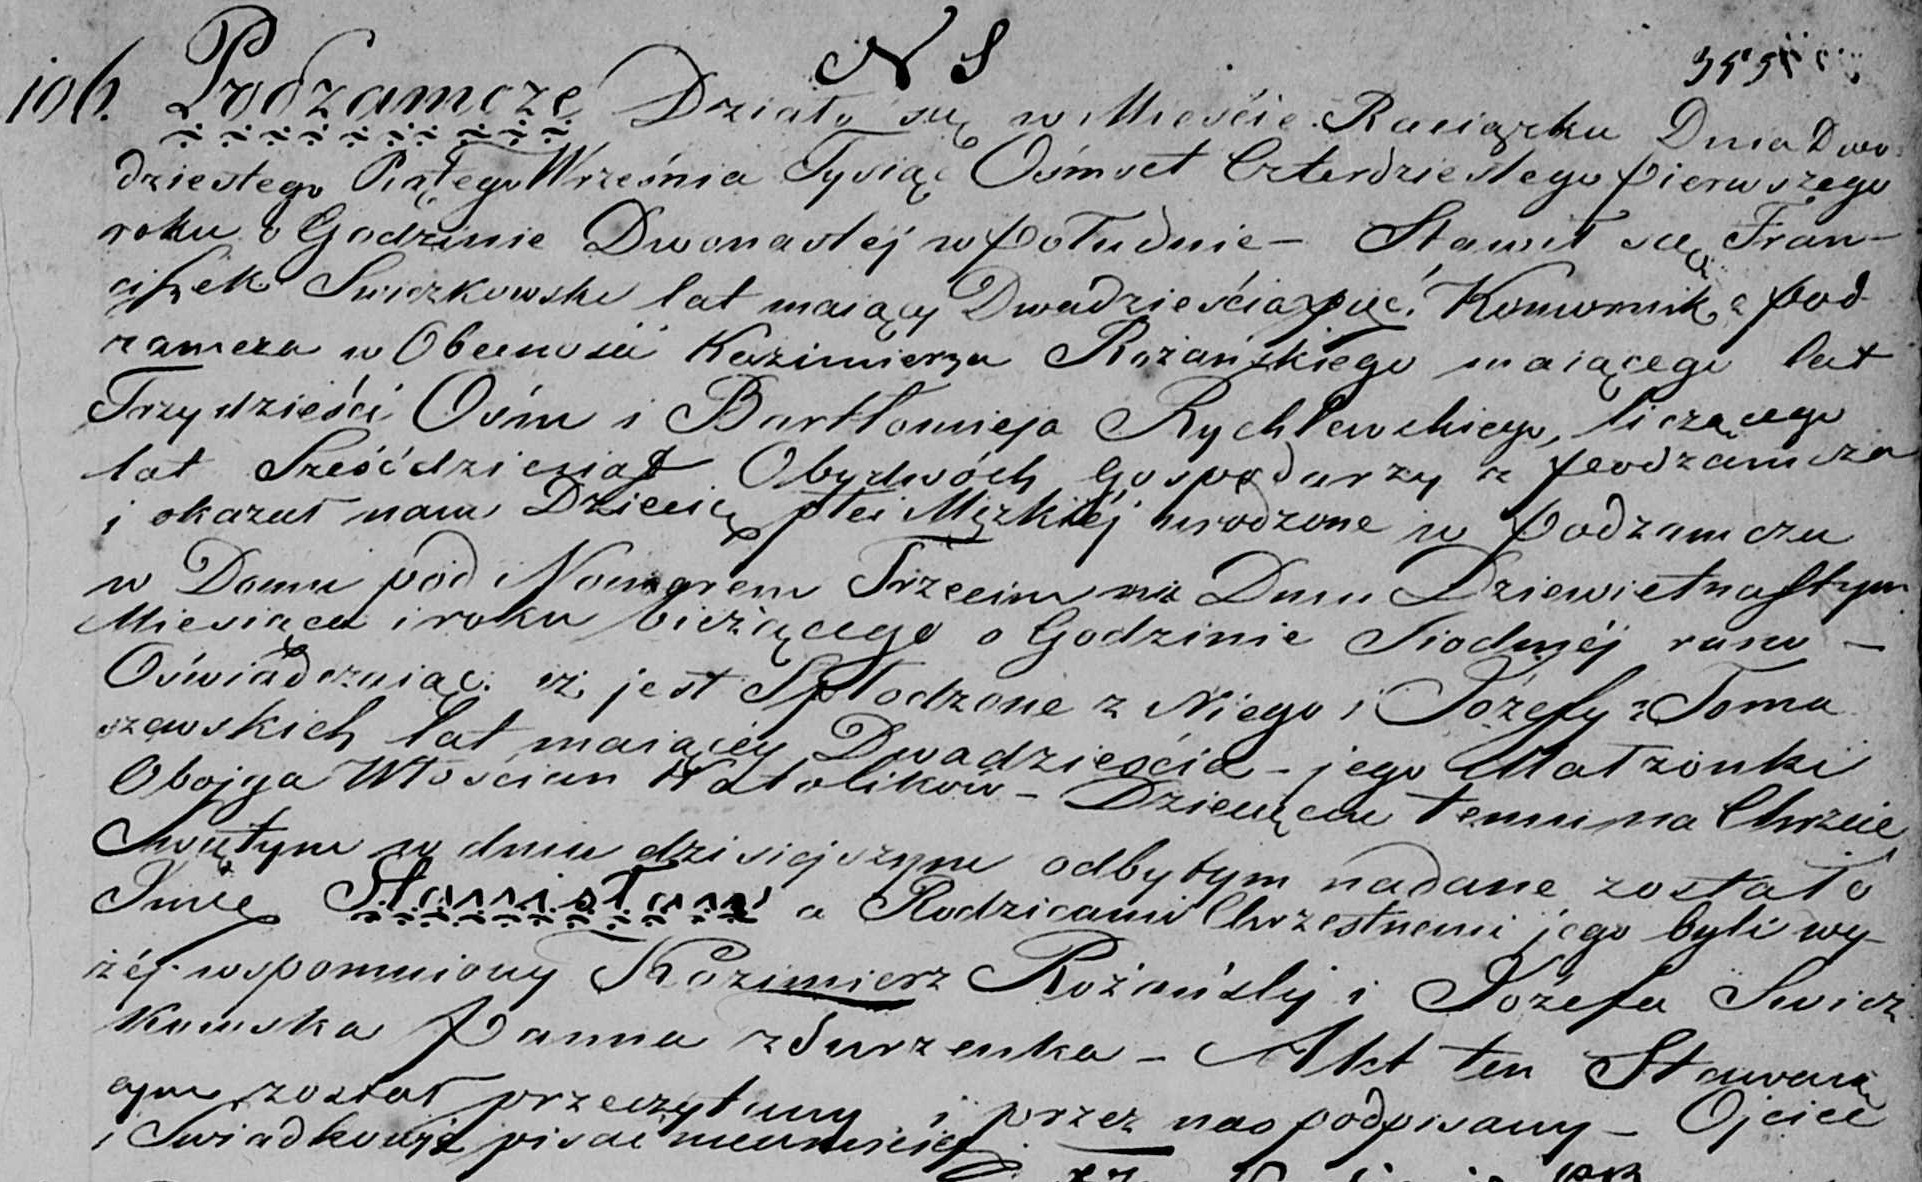 N S
106. Podzamcze Działo się w Mieście Raciążku Dnia Dwu-
dziestego Piątego Września Tysiąc Ośmset Czterdziestego pierwszego
roku o Godzinie Dwonastej w południe – Stawił się Fran-
ciszek Swiczkowski lat maiący Dwadzieścia pięć, Komornik z Pod
zamcza w Obecności Kazimierza Rożańskiego maiącego lat
Trzydzieści Ośm i Bartłomieja Rychlewskiego, liczącego
lat Sześćdziesiąt Obydwóch Gospodarzy z Podzamcza
i okazał nam Dziecię płci Męzkiéj urodzone w Podzamczu
w Domu pod Nomerem Trzecim na Dniu Dziewietnastym
Miesiąca i roku bieżącego o Godzinie Siodméj rano –
Oświadczaiąc iż jest Spłodzone z Niego i Józefy z Toma
szewskich lat maiącéy Dwadzieścia – jego Małżonki
Obojga Włościan Katolików – Dziecięciu temu na Chrzcie
Swiętym w dniu dzisiejszym odbytym nadane zostało
Imie Stanisław a Rodzicami Chrzestnemi jego byli wy-
żéj wspomniony Kazimierz Rożańsky i Józefa Swicz
kowska Panna z Turzenka – Akt ten Stawaią
cym został przeczytany i przez nas podpisany – Ojciec
i Swiadkowie pisać nieumieią